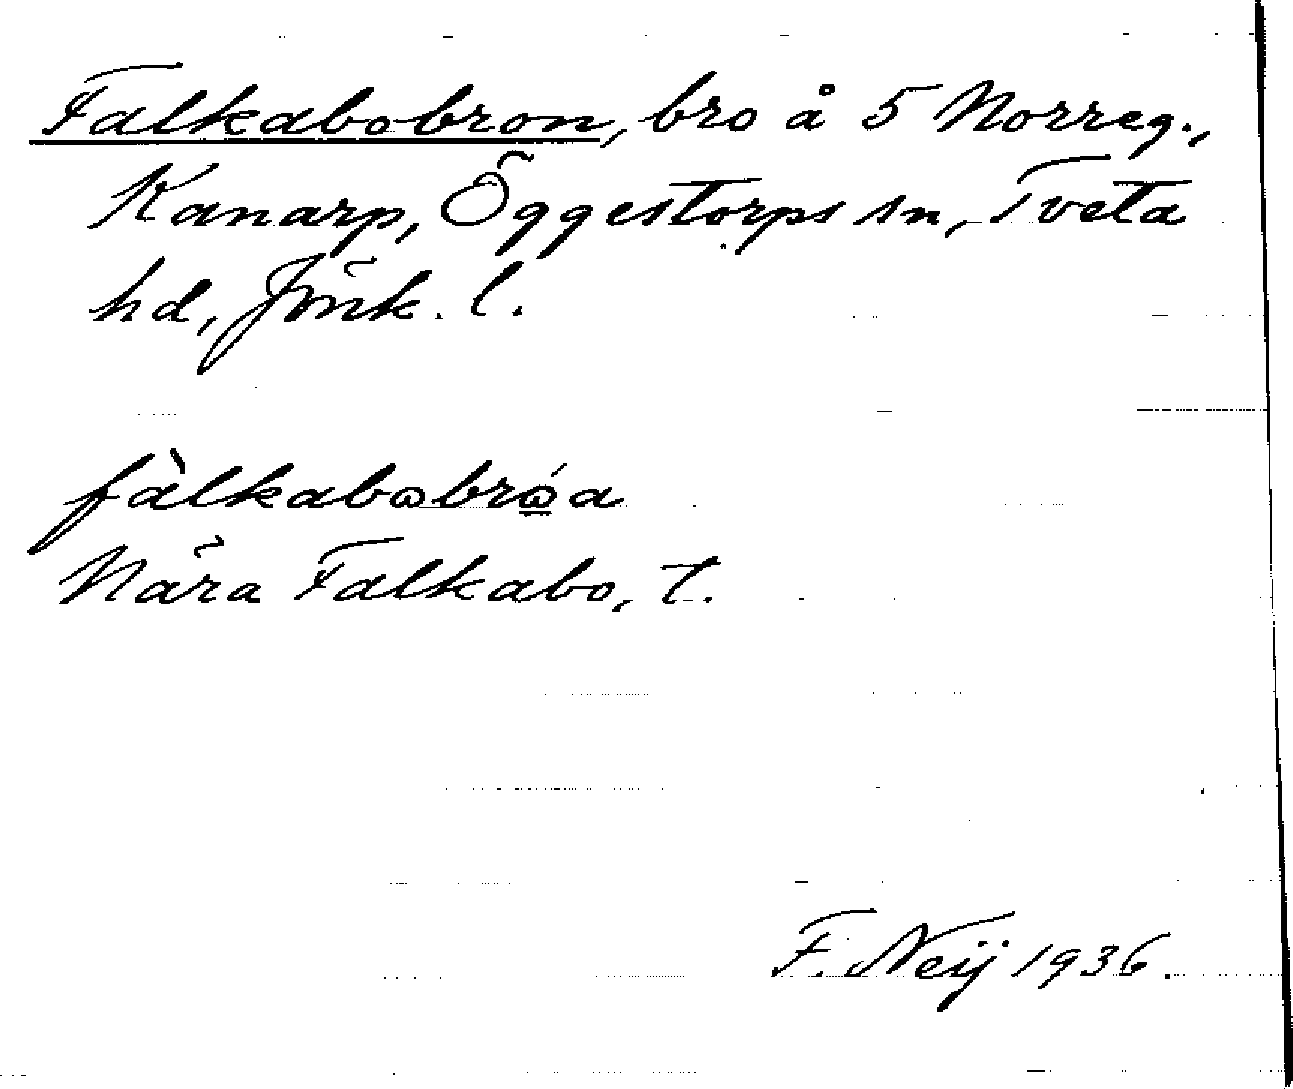 Falkabobron, bro å 5 Norreg.,
Kanarp, Öggestorps sn, Tveta
hd, Jönk. l.
fàlkabωbrώa
Nära Falkabo, t.
F. Neij 1936.